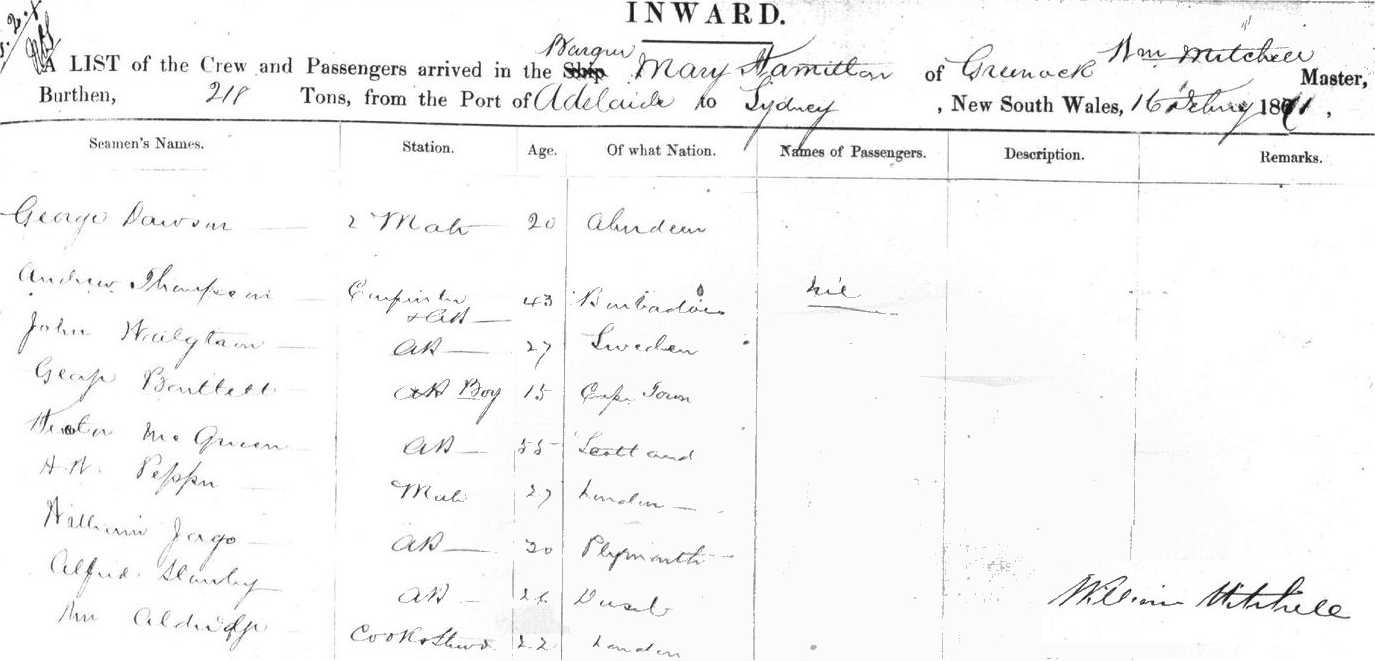 INWARD.
A LIST of the Crew and Passengers arrived in the Ship Barque Mary Hamilton of Greenock Wm Mitchell Master,
Burthen, 218 Tons, from the Port of Adelaide to Sydney, New South Wales, 16 Febury 1871,
Seamen's Names. Station. Age. Of what Nation. Names of Passengers. Description. Remarks.
George Dawson 2 Mate 20 Aberdeen
Andrew Thompson Carpenter 43 Barbadoes nil
+ AB
John AB 27 Sweden
George Bartlett AB Boy 15 Cape Town
Hector McQueen AB 55 Scotland
H.W. Pepper Mate 27 London
William Jago AB 30 Plymouth
Alfred Stanley AB
William Mitchell
Wm Aldridge Cook & Stewd 22 London